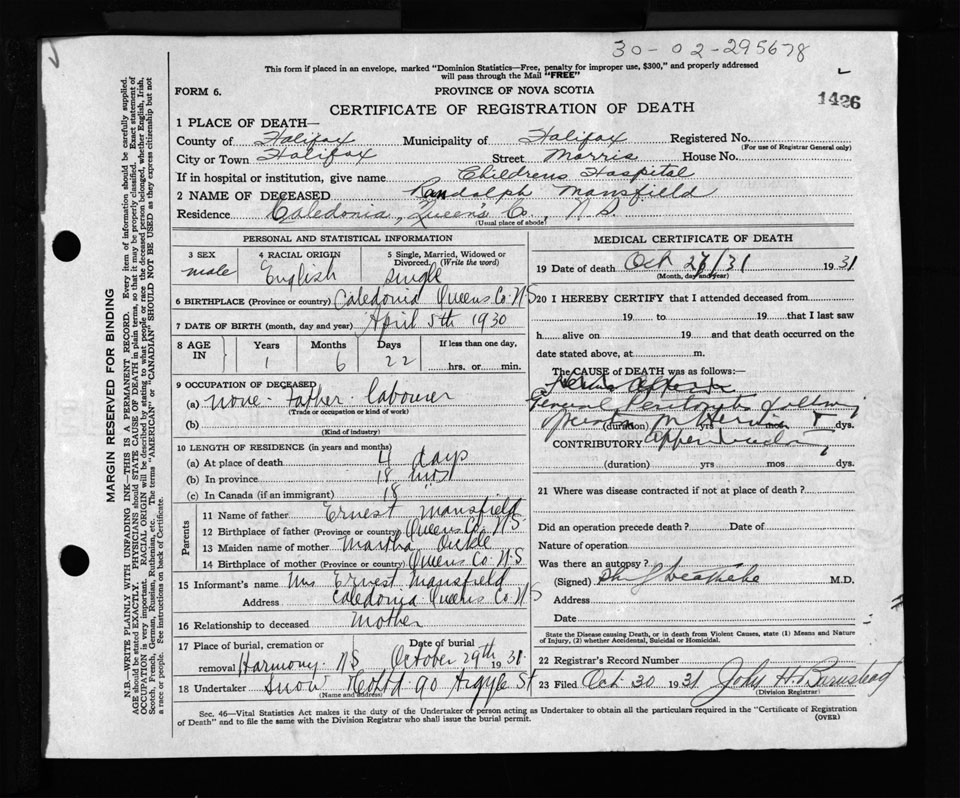 30-02-295678
This form if placed in an envelope, marked "Dominion Statistics—Free, penalty for improper use, $300," and properly addressed
will pass through the Mail "FREE"
FORM 6.
PROVINCE OF NOVA SCOTIA
1426
CERTIFICATE OF REGISTRATION OF DEATH
1 PLACE OF DEATH—
County of Halifax Municipality of Halifax Registered No.
(For use of Registrar General only)
City or Town Halifax Street Morris House No.
If in hospital or institution, give name Childrens Hospital
2 NAME OF DECEASED Randolph Mansfield
Residence Caledonia, Queen's Co, N.S.
(Usual place of abode)
PERSONAL AND STATISTICAL INFORMATION
3 SEX male
4 RACIAL ORIGIN English
5 Single, Married, Widowed or Divorced. (Write the word) single
6 BIRTHPLACE (Province or country) Caledonia Queens Co. N.S
7 DATE OF BIRTH (month, day and year) April 5th 1930
8 AGE IN Years Months Days If less than one day,
1 6 22 hrs. or min.
9 OCCUPATION OF DECEASED
(a) none - Father - labourer
(Trade or occupation or kind of work)
(b)
(Kind of industry)
10 LENGTH OF RESIDENCE (in years and months)
(a) At place of death 4 days
(b) In province 18 mos
(c) In Canada (if an immigrant) 18 "
Parents
11 Name of father Ernest Mansfield
12 Birthplace of father (Province or country) Queens Co N.S.
13 Maiden name of mother Martha
14 Birthplace of mother (Province or country) Queens Co N.S
15 Informant's name Mrs Ernest Mansfield
Address Caledonia Queens Co N.S
16 Relationship to deceased Mother
17 Place of burial, cremation or removal Harmony N.S Date of burial October 29th 1931
18 Undertaker Snow 90 Argyle St
(Name and address)
MEDICAL CERTIFICATE OF DEATH
19 Date of death Oct 27/31 1931
(Month, day and year)
20 I HEREBY CERTIFY that I attended deceased from
19 to 19 that I last saw
h alive on 19 and that death occurred on the
date stated above, at m.
The CAUSE of DEATH was as follows:—
General Peritonitis following
(duration) yrs mos dys.
CONTRIBUTORY
(duration) yrs mos dys.
21 Where was disease contracted if not at place of death?
Did an operation precede death? Date of
Nature of operation
Was there an autopsy?
(Signed) M.D.
Address
Date
State the Disease causing Death, or in death from Violent Causes, state (1) Means and Nature
of Injury, (2) whether Accidental, Suicidal or Homicidal.
22 Registrar's Record Number
23 Filed Oct 30 1931 John H. Barnstead
(Division Registrar)
Sec. 46—Vital Statistics Act makes it the duty of the Undertaker or person acting as Undertaker to obtain all the particulars required in the "Certificate of Registration
of Death" and to file the same with the Division Registrar who shall issue the burial permit.
(OVER)
MARGIN RESERVED FOR BINDING
N.B.—WRITE PLAINLY WITH UNFADING INK—THIS IS A PERMANENT RECORD. Every item of information should be carefully supplied.
AGE should be stated EXACTLY. PHYSICIANS should STATE CAUSE OF DEATH in plain terms, so that it may be properly classified. Exact statement of
OCCUPATION is very important. RACIAL ORIGIN will be described by stating to what people or race the deceased person belonged, whether English, Irish,
Scotch, French, German, Russian, Ruthenian, etc. The terms "AMERICAN" or "CANADIAN" SHOULD NOT BE USED as they express citizenship but not
a race or people. See instructions on back of Certificate.